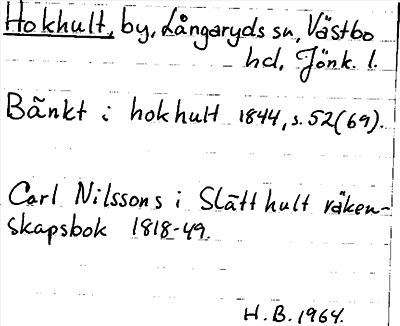 Hokhult, by, Långaryds sn, Västbo
hd, Jönk. l.
Bänkt i hokhult 1844, s. 52(69).
Carl Nilssons i Slätthult räken-
skapsbok 1818-49.
H.B. 1964.